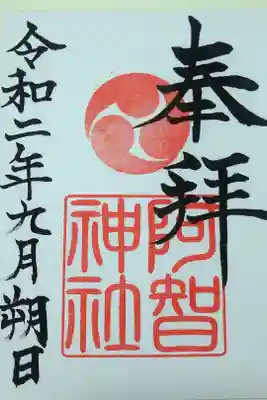 奉拝
阿智
神社
令和二年九月朔日